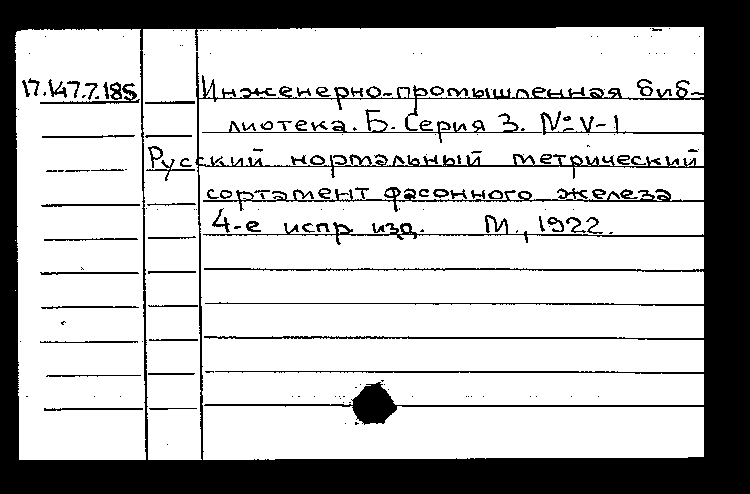 17.147.7.185 Инженерно-промышленная биб-
лиотека. Б. Серия 3. № V-1
Русский нормальный метрический
сортамент фасонного железа
4-е испр изд. М., 1922.